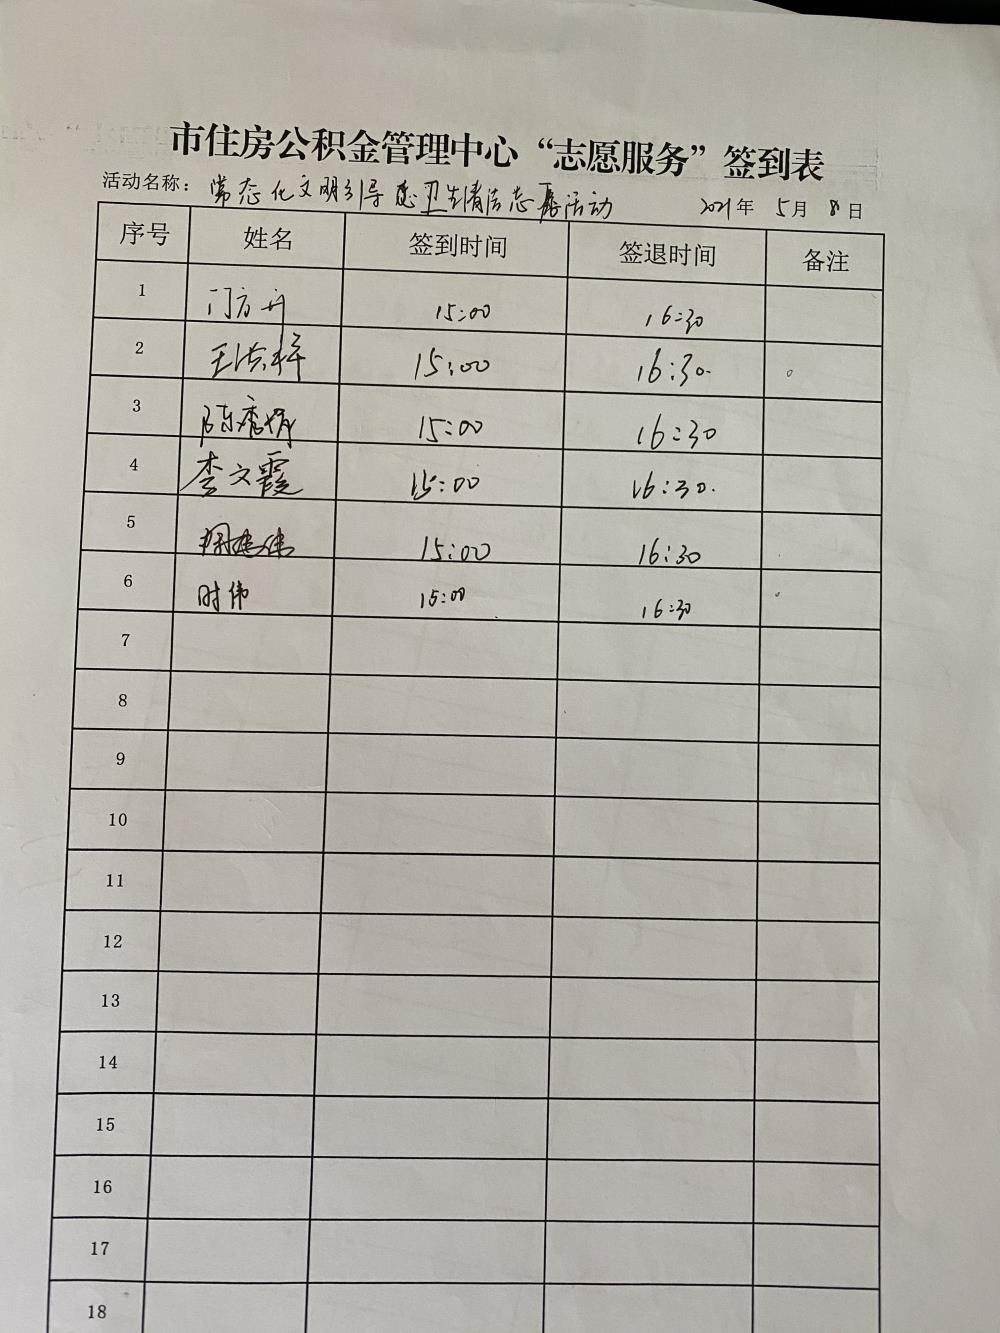 市住房公积金管理中心“志愿服务”签到表
活动名称： 常态化文明引导 卫生清洁志愿活动 2021年 5月 8日
序号 姓名 签到时间 签退时间 备注
1 门方舟 15:00 16:30
2 王洪祥 15:00 16:30
3 陈 15:00 16:30
4 李文霞 15:00 16:30
5 15:00 16:30
6 时伟 15:00 16:30
7
8
9
10
11
12
13
14
15
16
17
18